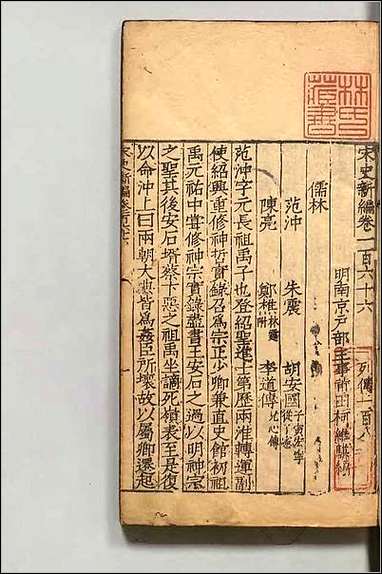 林氏藏書
宋史新編卷一百六十六　列傳一百八
明南京戶部主事莆田柯維騏編
儒林
范沖　朱震　胡安國子寅宏寧
陳亮　鄭樵林霆附　李道傳
范沖字元長祖禹子也登紹聖進士第歷兩淮轉運副
使紹興重修神哲實錄召為宗正少卿兼直史館初祖
禹元祐中嘗修神宗實錄盡書王安石之過以明神宗
之聖其後安石壻蔡卞惡之祖禹坐謫死嶺表至是復
以命沖上曰兩朝大典皆為姦臣所壞故以屬卿遂起
宋史新編卷一百六十六　一